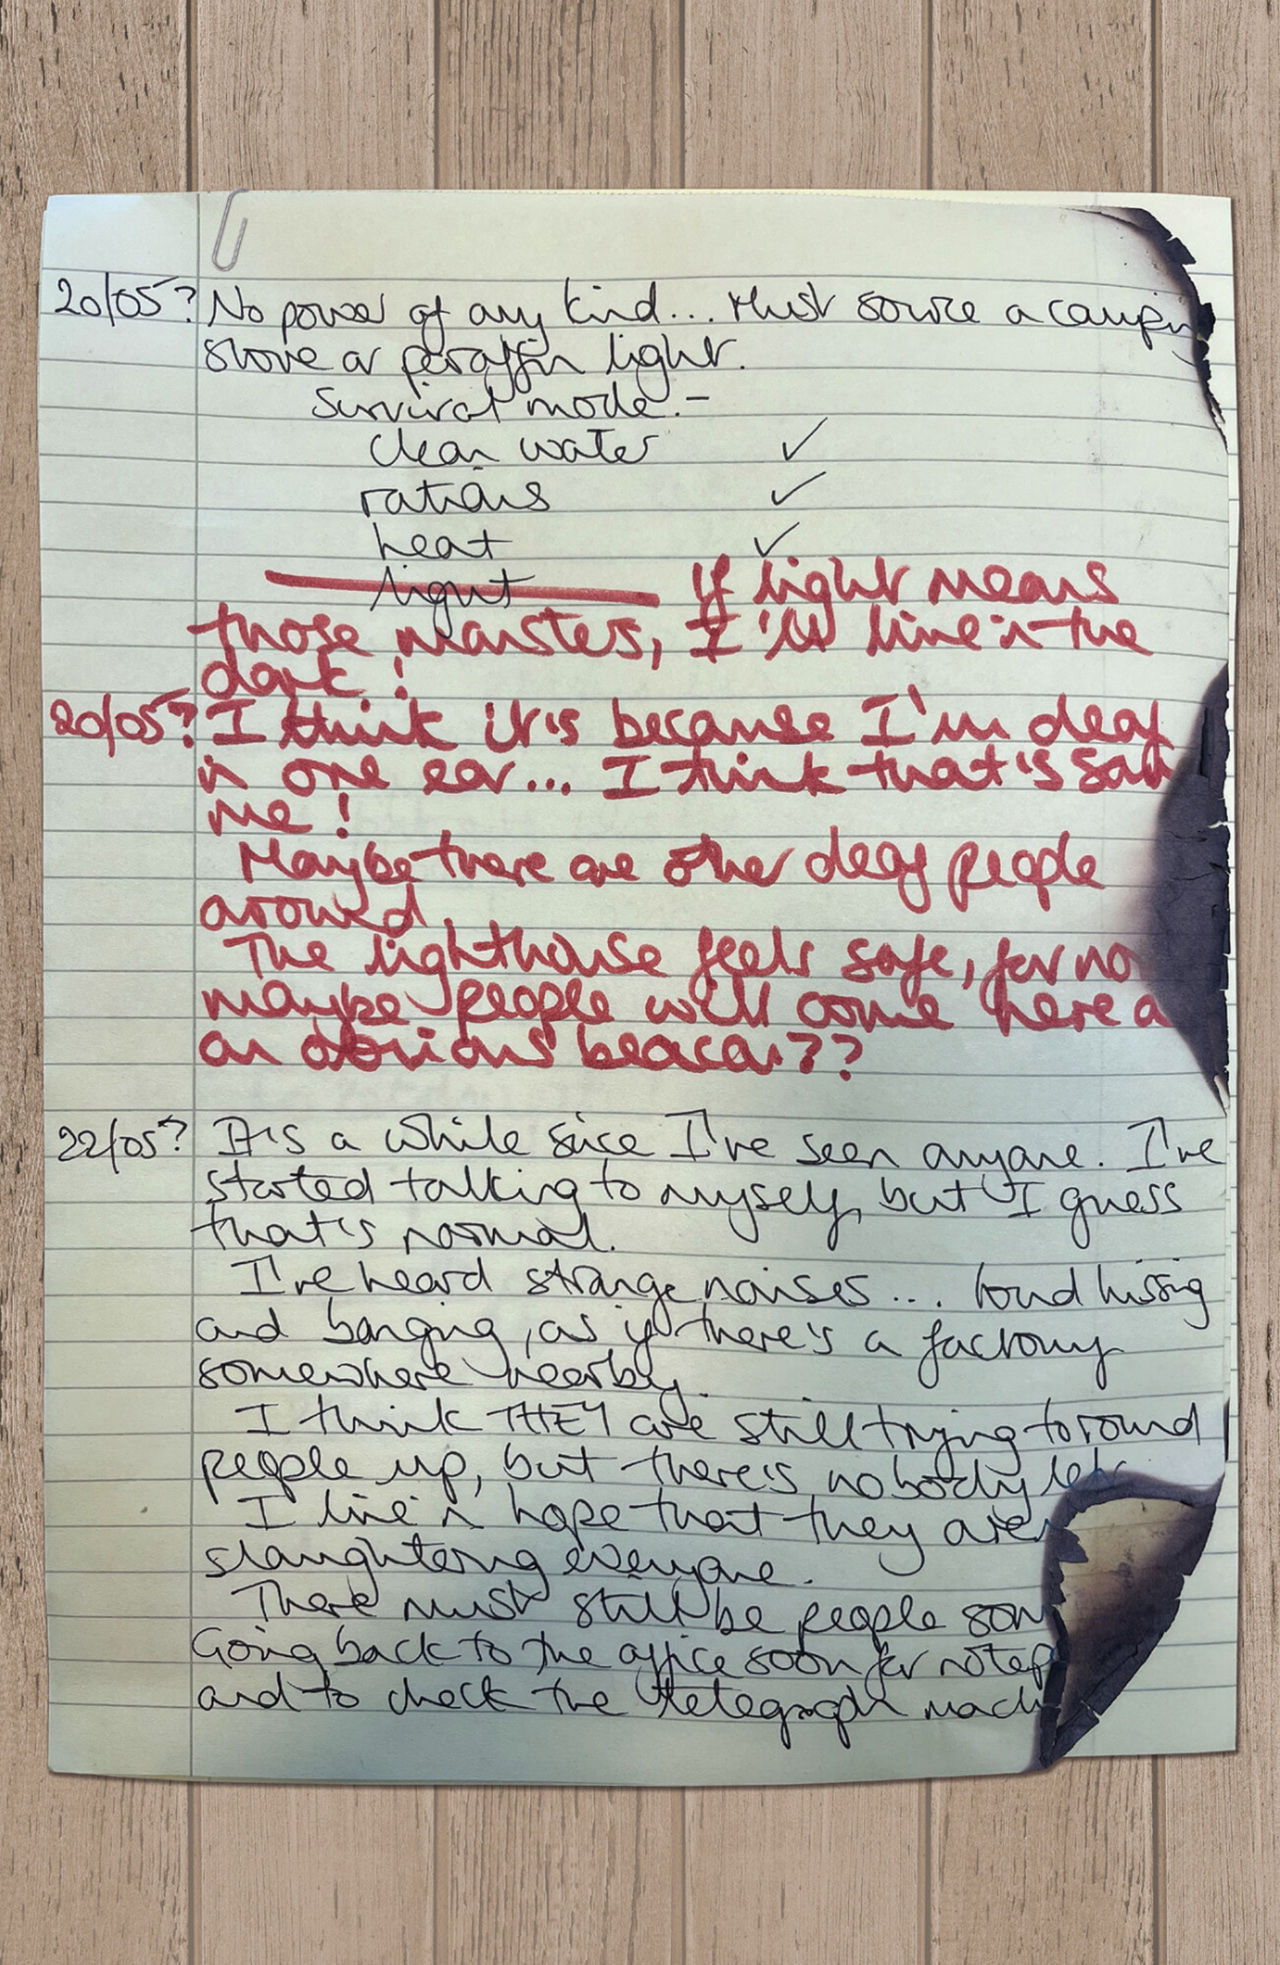 20/05? No power of any kind... Must source a campin
stove or paraffin light.
Survival mode:-
clean water ✓
rations ✓
heat ✓
light If light means
those monsters, I'll live in the
dark!
20/05? I think it's because I'm deaf
in one ear... I think that's sav
me!
Maybe there are other deaf people
around.
The lighthouse feels safe, for no
maybe people will come here a
an obvious beacon??
22/05? It's a while since I've seen anyone. I've
started talking to myself, but I guess
that's normal.
I've heard strange noises... loud hissing
and banging, as if there's a factory
somewhere nearby.
I think THEY are still trying to round
people up, but there's nobody left
I live in hope that they aren
slaughtering everyone.
There must still be people som
Going back to the office soon for notep
and to check the telegraph mach